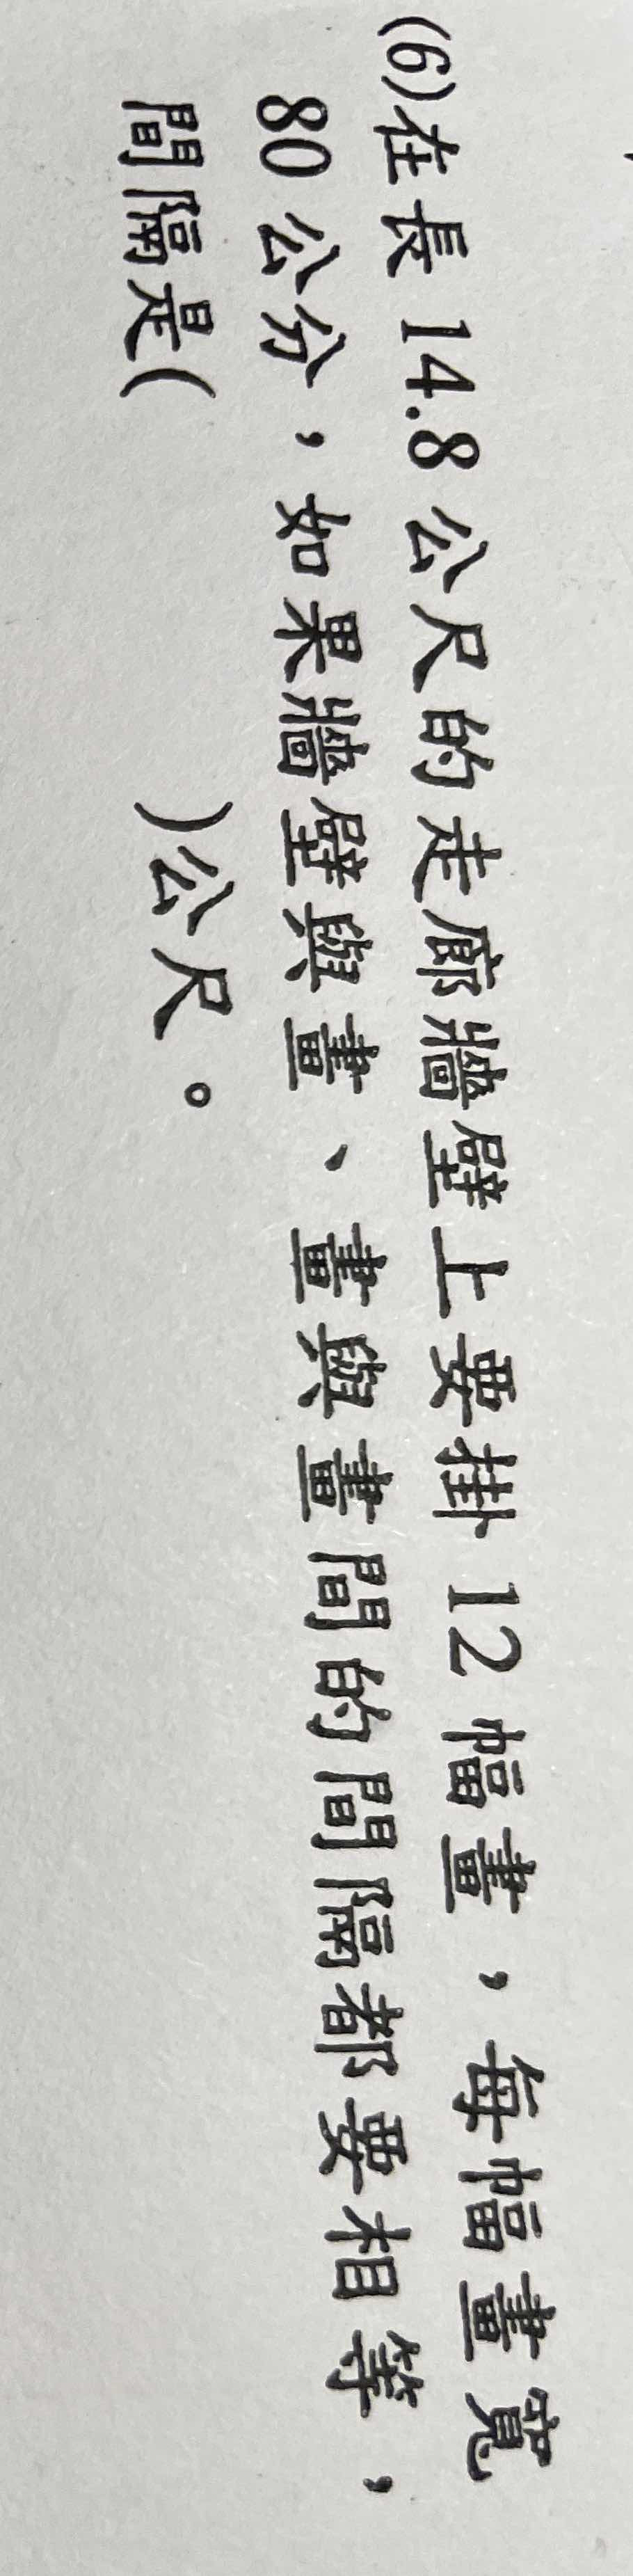 (6)在長 14.8 公尺的走廊牆壁上要掛 12 幅畫，每幅畫寬
80 公分，如果牆壁與畫、畫與畫間的間隔都要相等，
間隔是(　　　　)公尺。